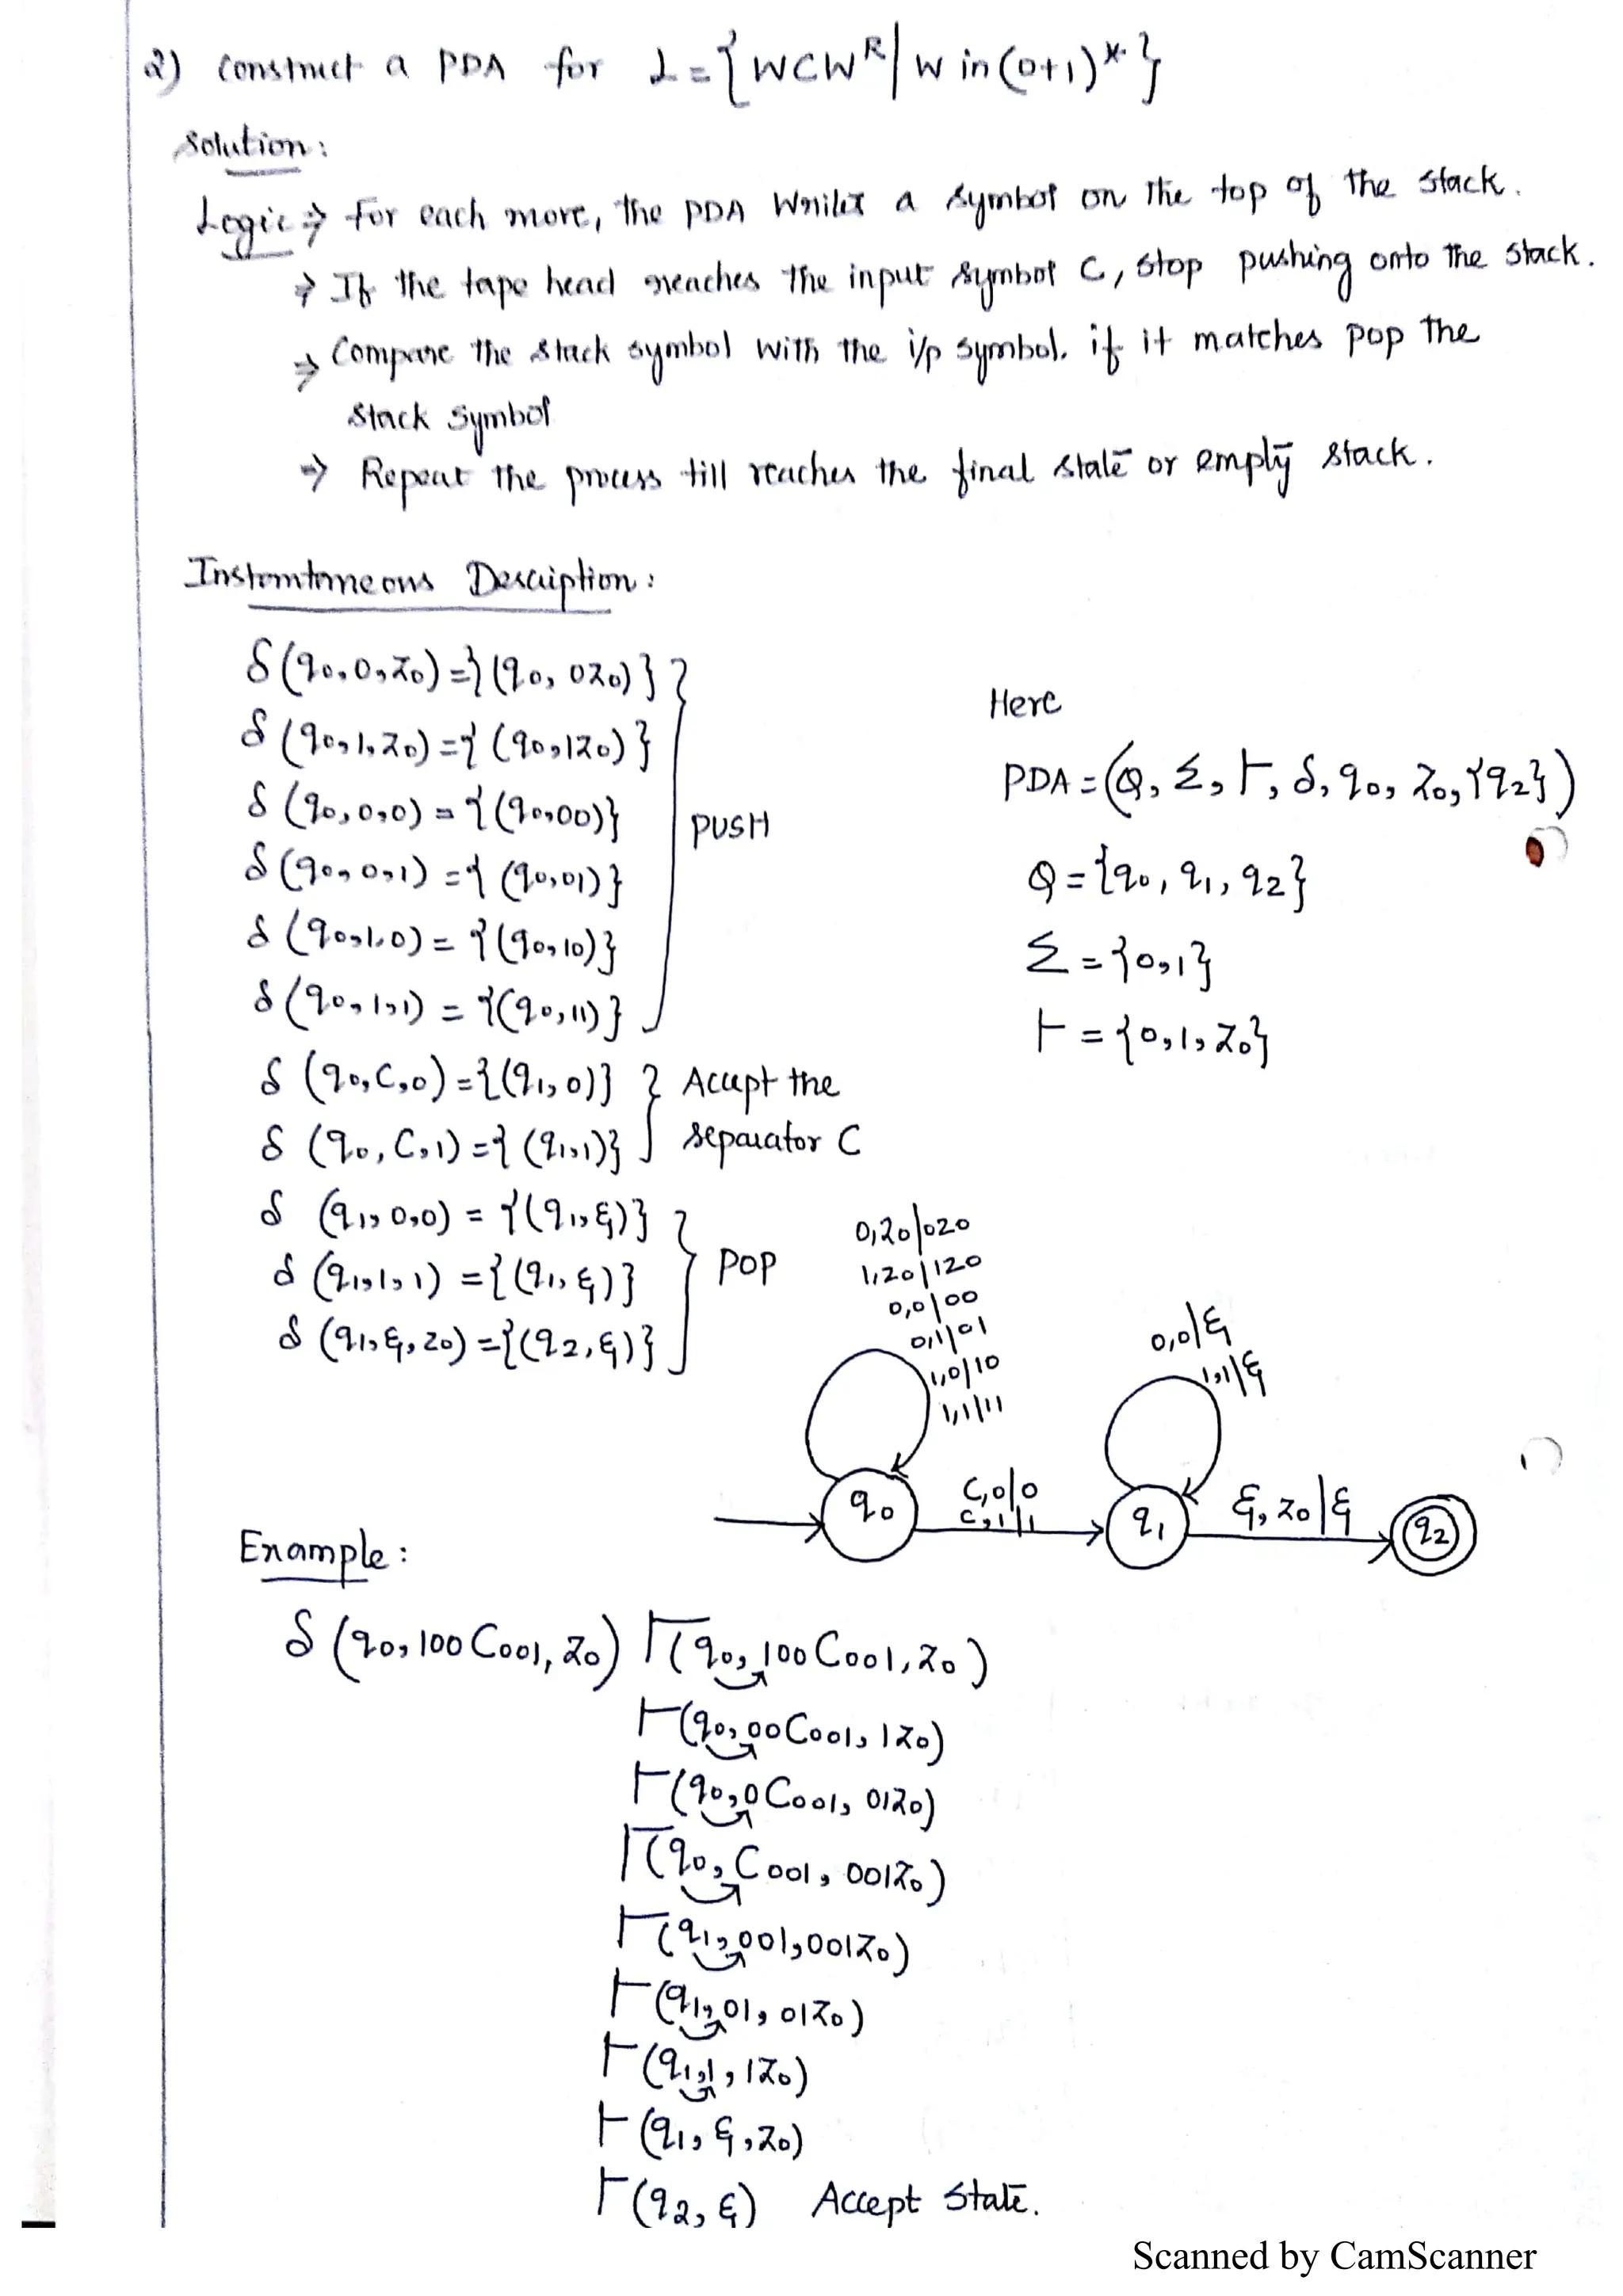 2) Construct a PDA for L = {WCW^R | W in (0+1)*}
Solution:
Logic ⇒ For each move, the PDA Writes a symbol on the top of the stack.
⇒ If the tape head reaches the input symbol C, stop pushing onto the stack.
⇒ Compare the stack symbol with the i/p symbol. if it matches pop the
stack symbol
⇒ Repeat the process till reaches the final state or empty stack.
Instantaneous Description:
δ(q0, 0, z0) = {(q0, 0z0)}
δ(q0, 1, z0) = {(q0, 1z0)}
δ(q0, 0, 0) = {(q0, 00)}
δ(q0, 0, 1) = {(q0, 01)}
δ(q0, 1, 0) = {(q0, 10)}
δ(q0, 1, 1) = {(q0, 11)}
PUSH
δ(q0, C, 0) = {(q1, 0)}
δ(q0, C, 1) = {(q1, 1)}
Accept the
separator C
δ(q1, 0, 0) = {(q1, ε)}
δ(q1, 1, 1) = {(q1, ε)}
δ(q1, ε, z0) = {(q2, ε)}
POP
Here
PDA = (Q, Σ, Γ, δ, q0, z0, {q2})
Q = {q0, q1, q2}
Σ = {0, 1}
Γ = {0, 1, z0}
0, z0 | 0z0
1, z0 | 1z0
0, 0 | 00
0, 1 | 01
1, 0 | 10
1, 1 | 11
0, 0 | ε
1, 1 | ε
q0
C, 0 | 0
C, 1 | 1
q1
ε, z0 | ε
q2
Example:
δ(q0, 100C001, z0) ⊢ (q0, 100C001, z0)
⊢ (q0, 00C001, 1z0)
⊢ (q0, 0C001, 01z0)
⊢ (q0, C001, 001z0)
⊢ (q1, 001, 001z0)
⊢ (q1, 01, 01z0)
⊢ (q1, 1, 1z0)
⊢ (q1, ε, z0)
⊢ (q2, ε) Accept State.
Scanned by CamScanner